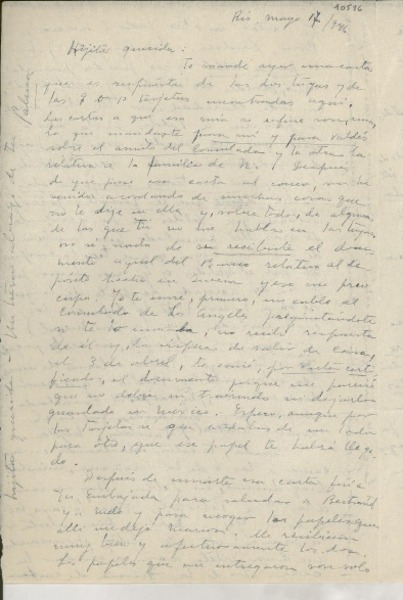 10596
Rio mayo 17/946
Hijita querida:
Te mandé ayer una carta
que es respuesta de las dos tuyas y de
las 7 o 8 tarjetas encontradas aquí.
Las cartas a que esa mía se refiere son, una,
la que mandaste para mí y para Valdés
sobre el asunto del Consulado y la otra la
relativa a la familia de N. Después
de que puse esa carta al correo, me he
venido acordando de muchas cosas que
no te dije en ella y, sobre todo, de algunas
de las que tú no me hablas en las tuyas,
no se trata de si recibiste el docu-
mento aquel del Banco relativo al de-
pósito hecho en y eso me preo-
cupa. Yo te envié, primero, un cable al
Consulado de Los Angeles preguntándote
si te lo mandaba, no recibí respuesta
de él y, la víspera de salir de casa,
el 3 de abril, te envié, por avión certi-
ficado, el documento porque me pareció
que no debía ni traérmelo ni dejarlo
guardado en México. Espero, aunque por
las tarjetas sé que andabas de un lado
para otro, que ese papel te habrá llega-
do.
Después de mandarte esa carta fui a
la Embajada para saludar a
y para recoger los papeles que
allí me dejó. Me recibieron
muy bien y afectuosamente los dos.
Los papeles que me entregaron son solo
Hijita querida
Palma